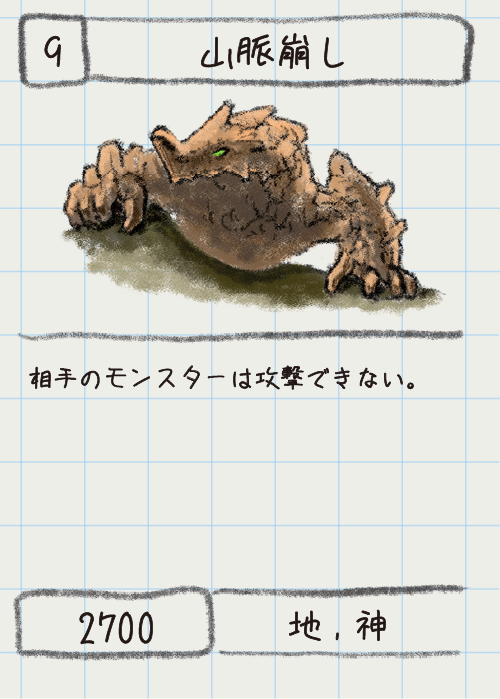 9
山脈崩し
相手のモンスターは攻撃できない。
2700
地,神